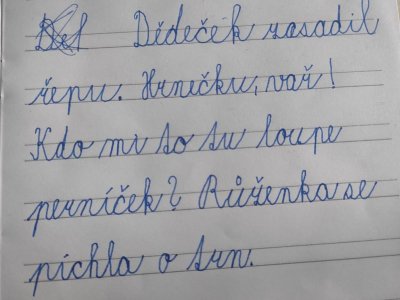 Dědeček zasadil
řepu. Hrnečku, vař!
Kdo mi to tu loupe
perníček? Růženka se
píchla o trn.